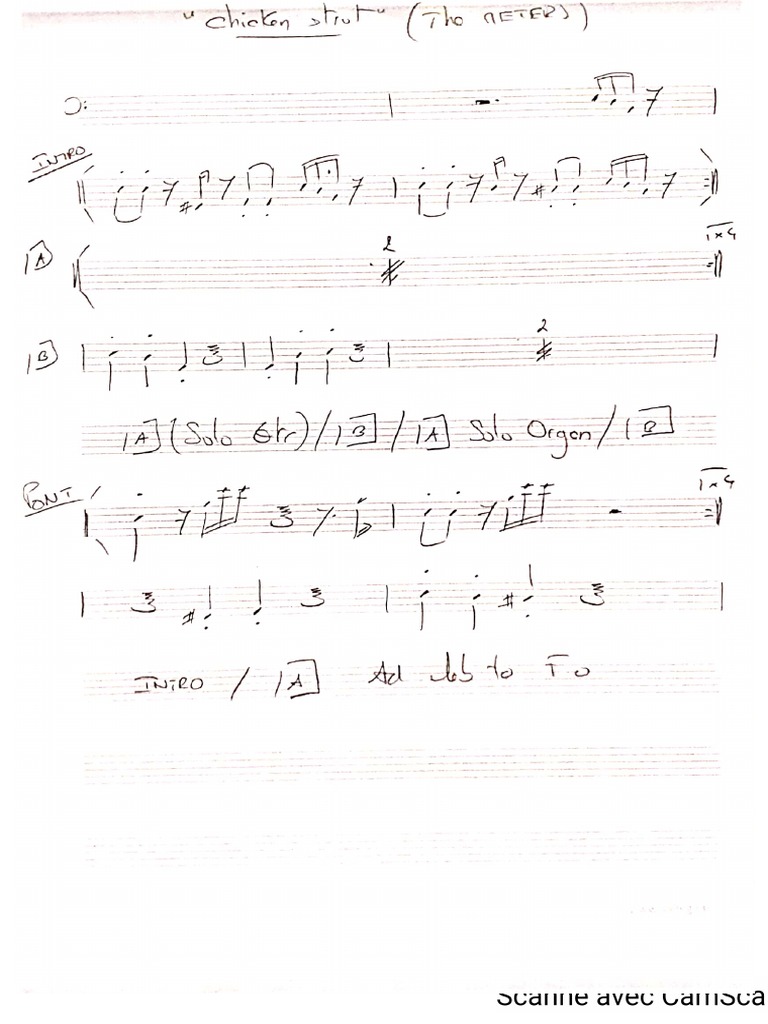 "Chicken strut" (The METERS)
INTRO
A
2
1x4
B
2
A (Solo Gtr) / B / A Solo Organ / B
PONT
1x4
INTRO / A Ad lib to F.O
Scanné avec CamSca